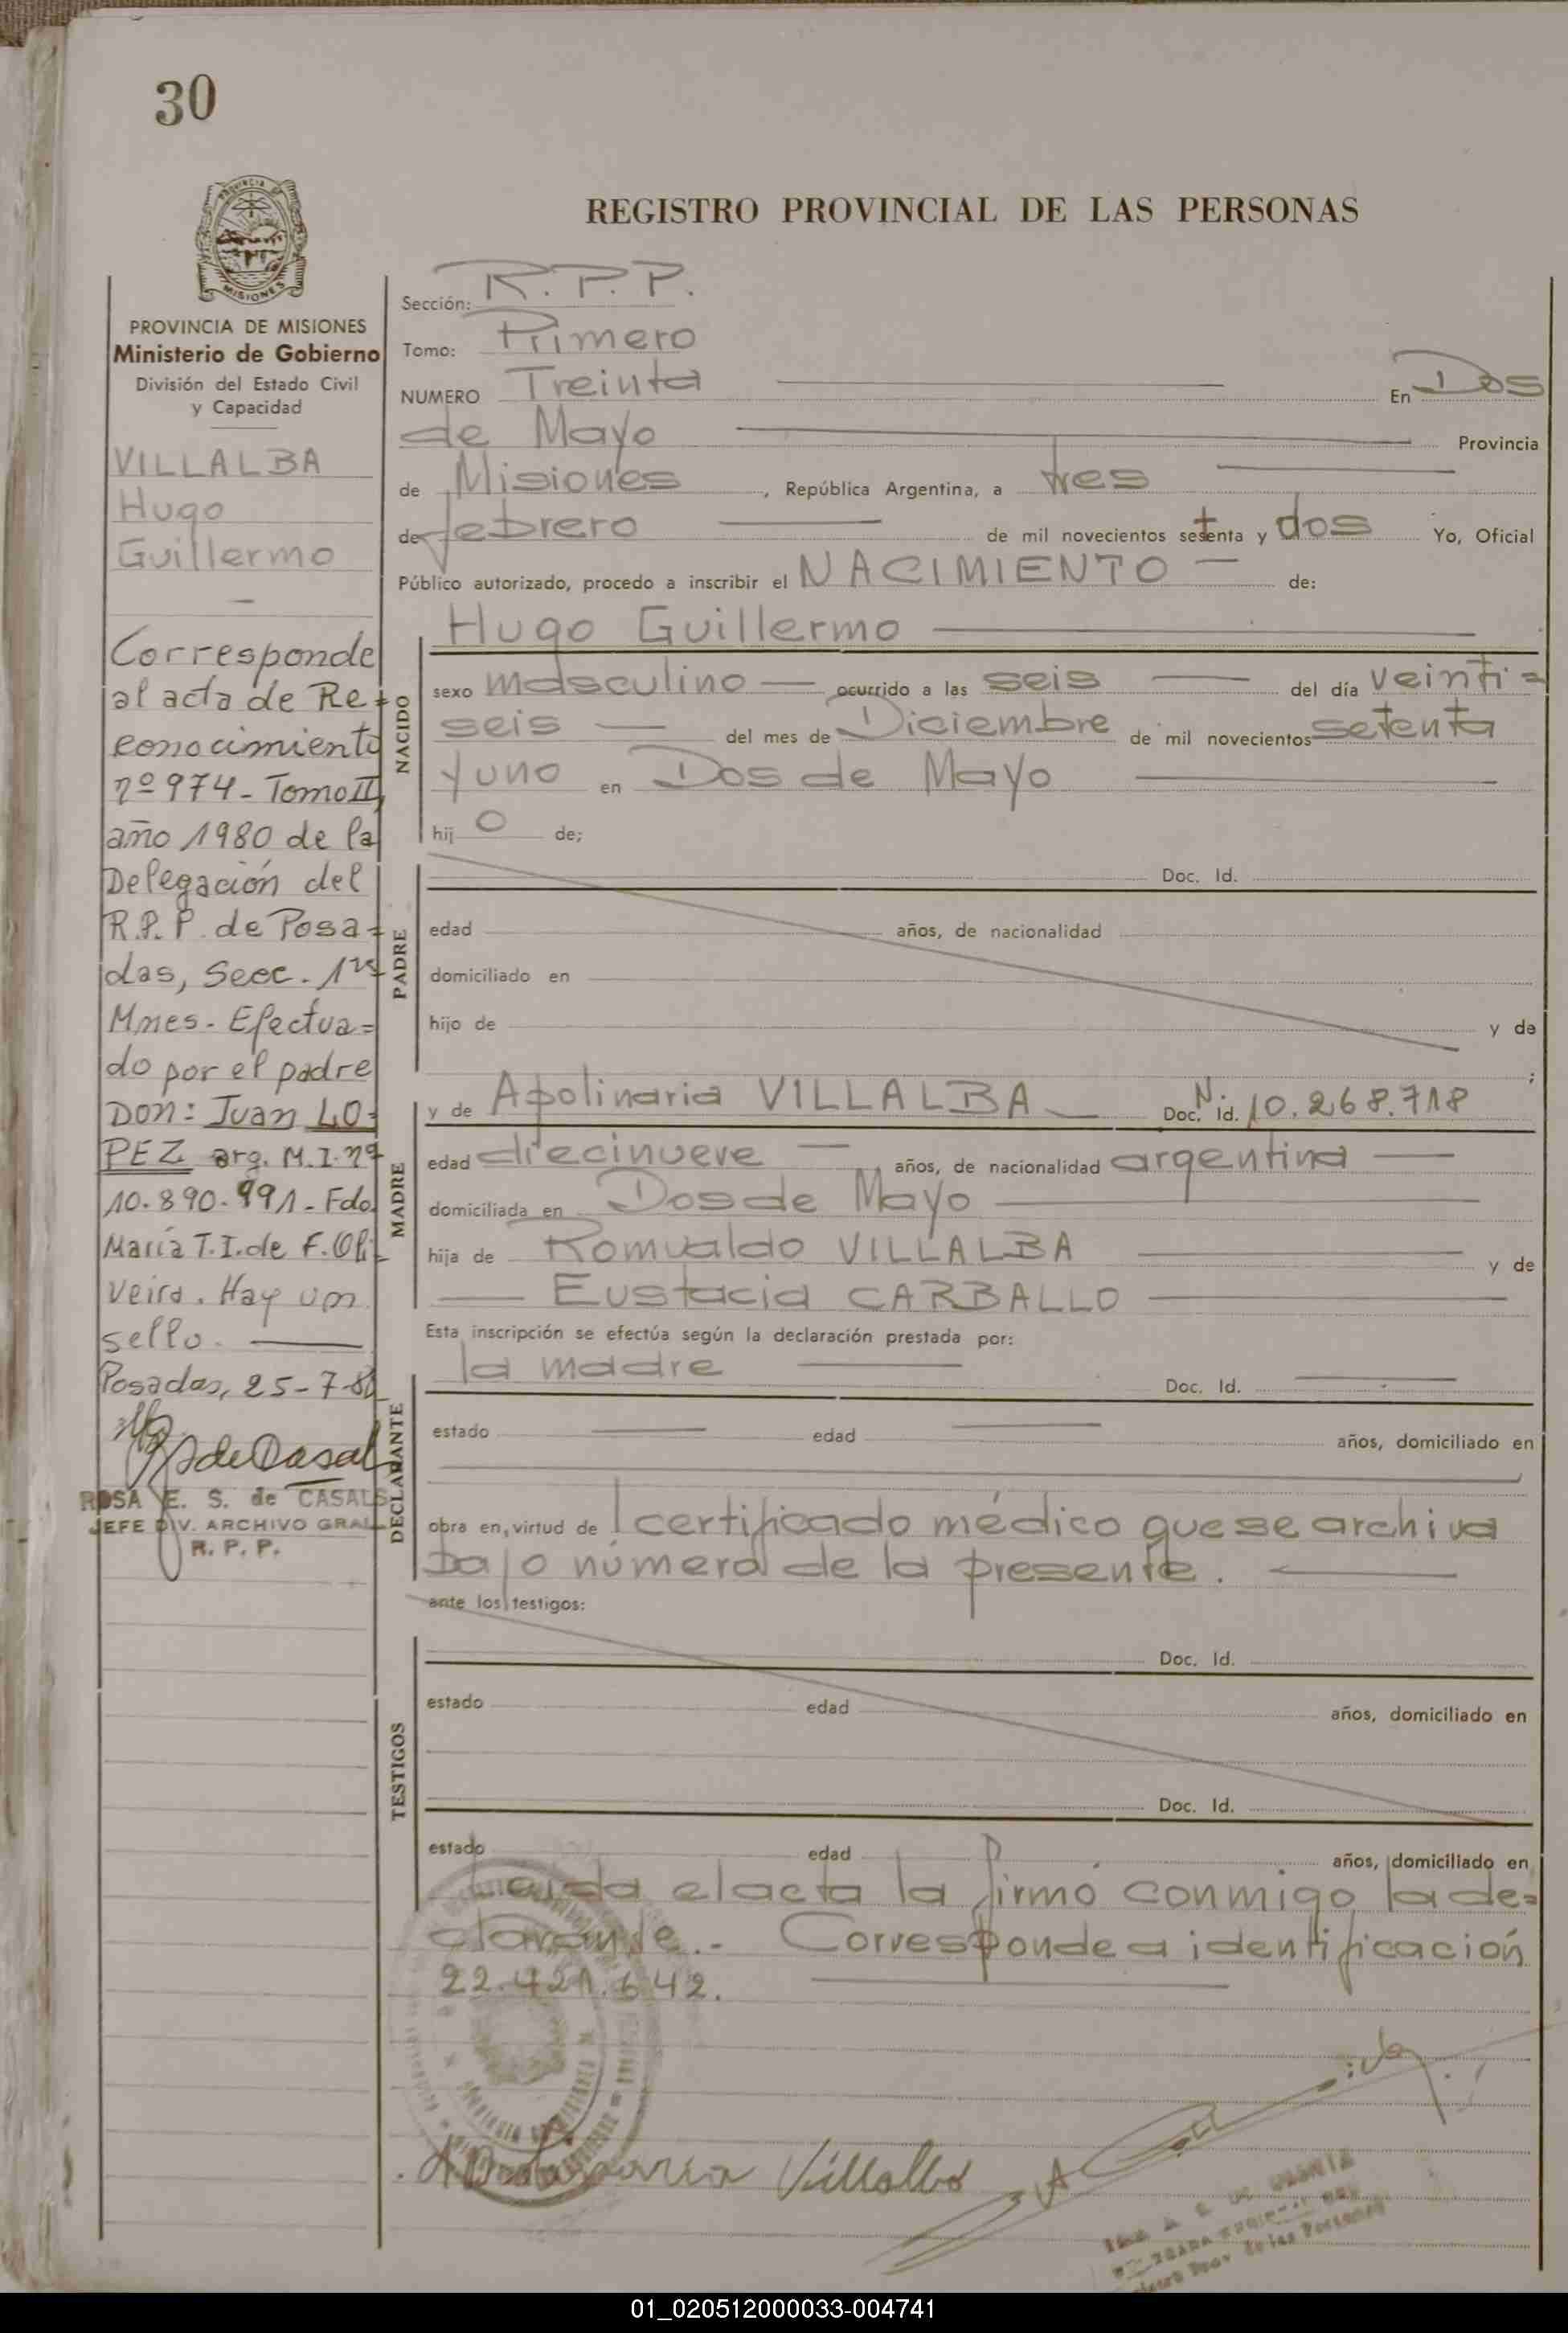 30
REGISTRO PROVINCIAL DE LAS PERSONAS
MISIONES
PROVINCIA DE MISIONES
Ministerio de Gobierno
División del Estado Civil
y Capacidad
VILLALBA
Hugo
Guillermo
Corresponde
al acta de Re=
conocimiento
nº 974 - Tomo II,
año 1980 de la
Delegación del
R.P.P. de Posa=
das, Secc. 1ra
Mnes. Efectua=
do por el padre
Don: Juan LO=
PEZ arg. M.I. nº
10.890.991 - Fdo.
María T.I. de F. Oli-
veira. Hay un
sello.
Posadas, 25-7-80
ROSA E. S. de CASALS
JEFE DIV. ARCHIVO GRAL
R. P. P.
Sección: R.P.P.
Tomo: Primero
NUMERO Treinta En Dos
de Mayo Provincia
de Misiones, República Argentina, a tres
de febrero de mil novecientos setenta y dos Yo, Oficial
Público autorizado, procedo a inscribir el NACIMIENTO de:
Hugo Guillermo
NACIDO
sexo masculino ocurrido a las seis del día veinti=
seis del mes de Diciembre de mil novecientos setenta
y uno en Dos de Mayo
hijo de;
PADRE
Doc. Id.
edad años, de nacionalidad
domiciliado en
hijo de y de
;
MADRE
y de Apolinaria VILLALBA Doc. Id. N. 10.268.718
edad diecinueve años, de nacionalidad argentina
domiciliada en Dos de Mayo
hija de Romualdo VILLALBA y de
Eustacia CARBALLO
Esta inscripción se efectúa según la declaración prestada por:
DECLARANTE
la madre Doc. Id.
estado edad años, domiciliado en
obra en virtud de l certificado médico que se archiva
bajo número de la presente.
ante los testigos:
TESTIGOS
Doc. Id.
estado edad años, domiciliado en
Doc. Id.
estado edad años, domiciliado en
Leida el acta la firmó conmigo la de=
clarante.- Corresponde a identificación
22.421.642.
Apolinaria Villalba
01_020512000033-004741